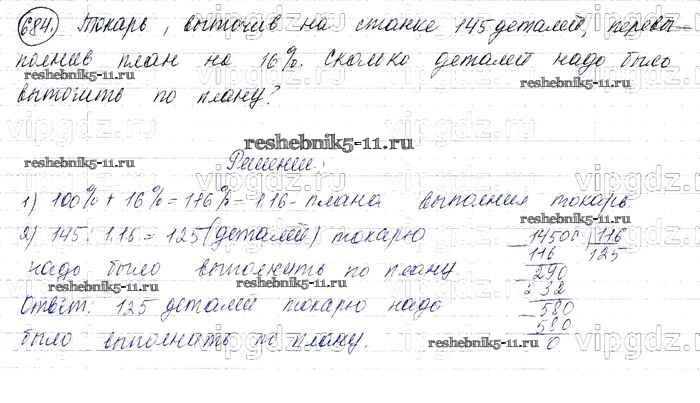 684. Токарь, выточив на станке 145 деталей, перевы-
полнив план на 16%. Сколко деталей надо было
выточить по плану?
vipgdz.ru vipgdz.ru vipgdz.ru
reshebnik5-11.ru
reshebnik5-11.ru reshebnik5-11.ru
Решение:
vipgdz.ru vipgdz.ru vipgdz.ru
1) 100% + 16% = 116% = 1.16 - плана выполнил токарь
2) 145 : 1.16 = 125 (деталей) токарю
надо было выполнить по плану
14500 | 116
116 125
290
232
580
580
0
reshebnik5-11.ru reshebnik5-11.ru reshebnik5-11.ru
Ответ: 125 деталей токарю надо
было выполнить по плану.
vipgdz.ru vipgdz.ru vipgdz.ru
reshebnik5-11.ru